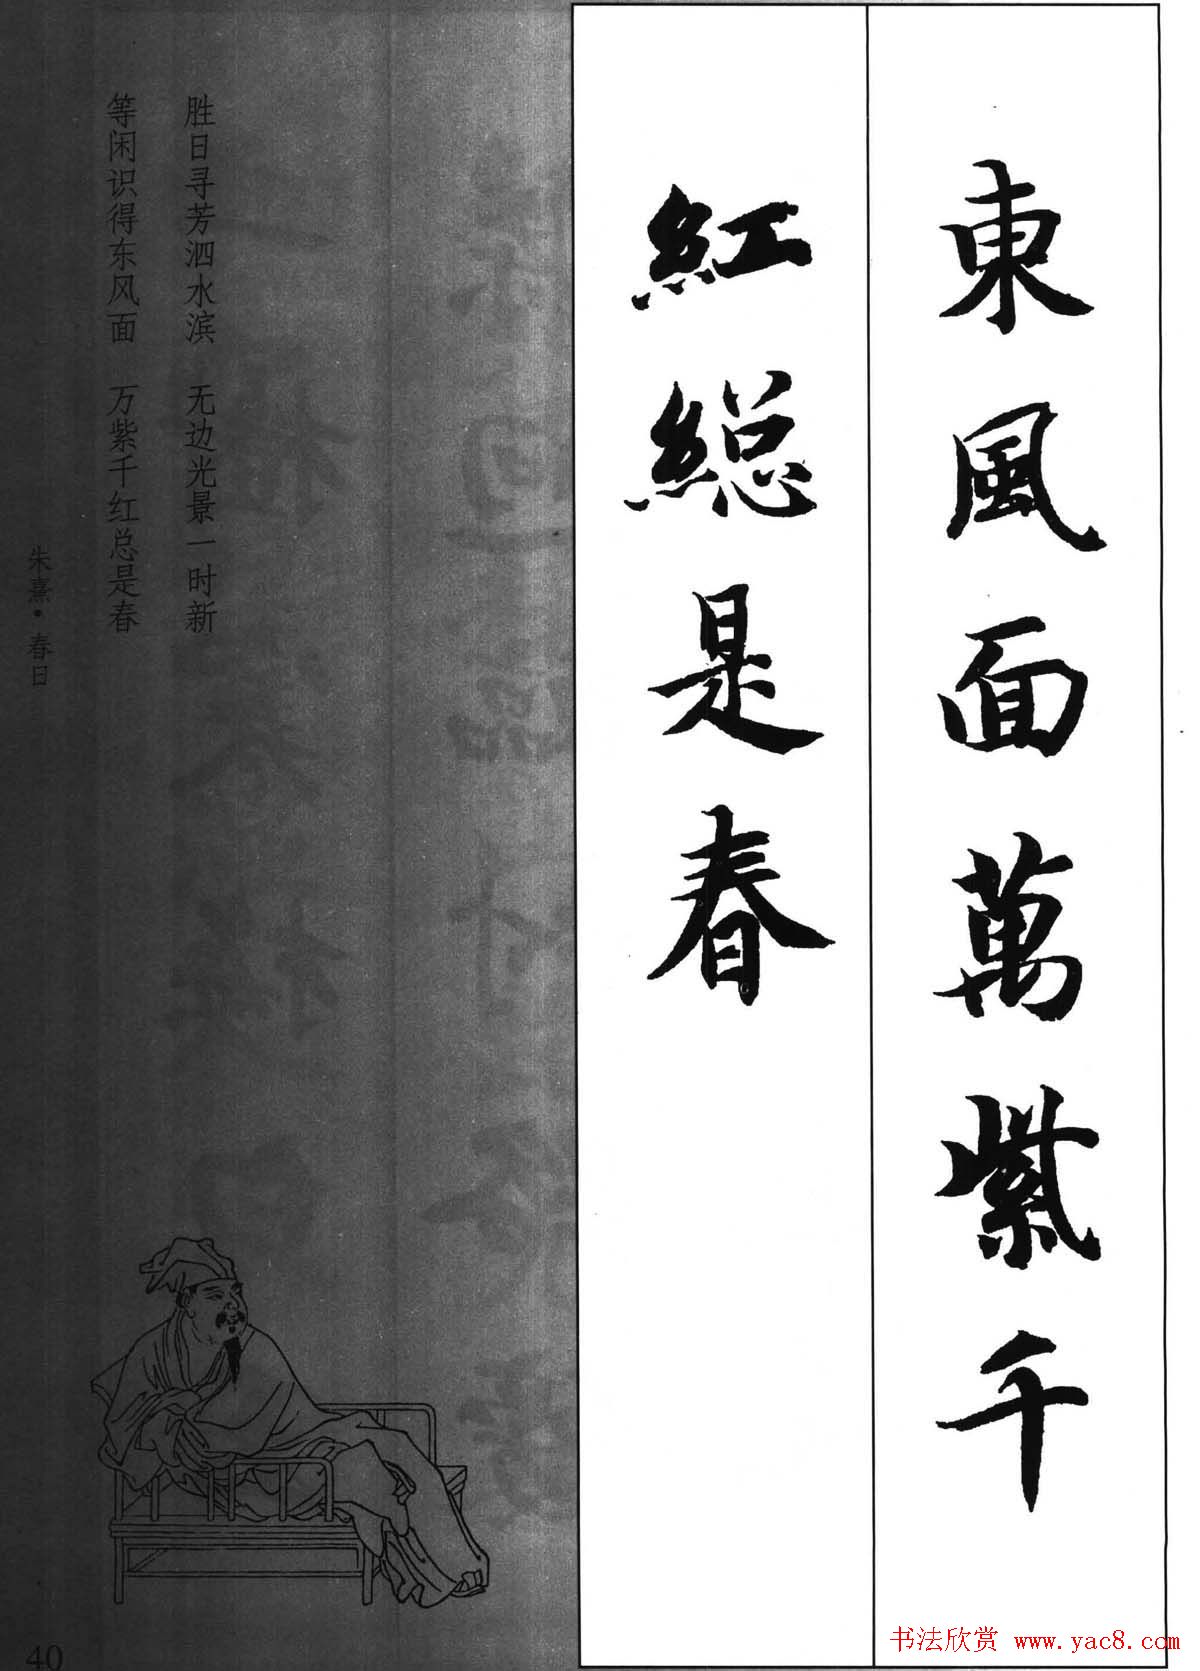 東風面萬紫千
紅總是春
胜日寻芳泗水滨 无边光景一时新
等闲识得东风面 万紫千红总是春
朱熹·春日
40
书法欣赏 www.yac8.com